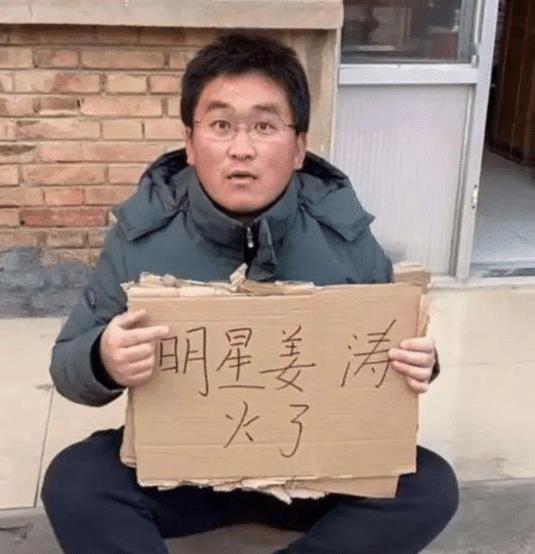 明星姜涛
火了